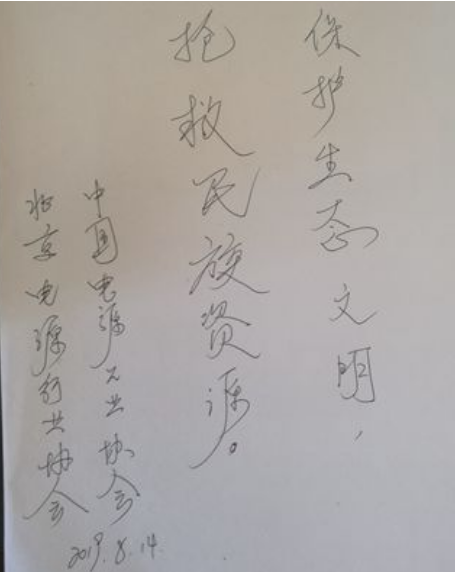 保护生态文明，
抢救民族资源。
中国电源工业协会
北京电源行业协会
2019.8.14